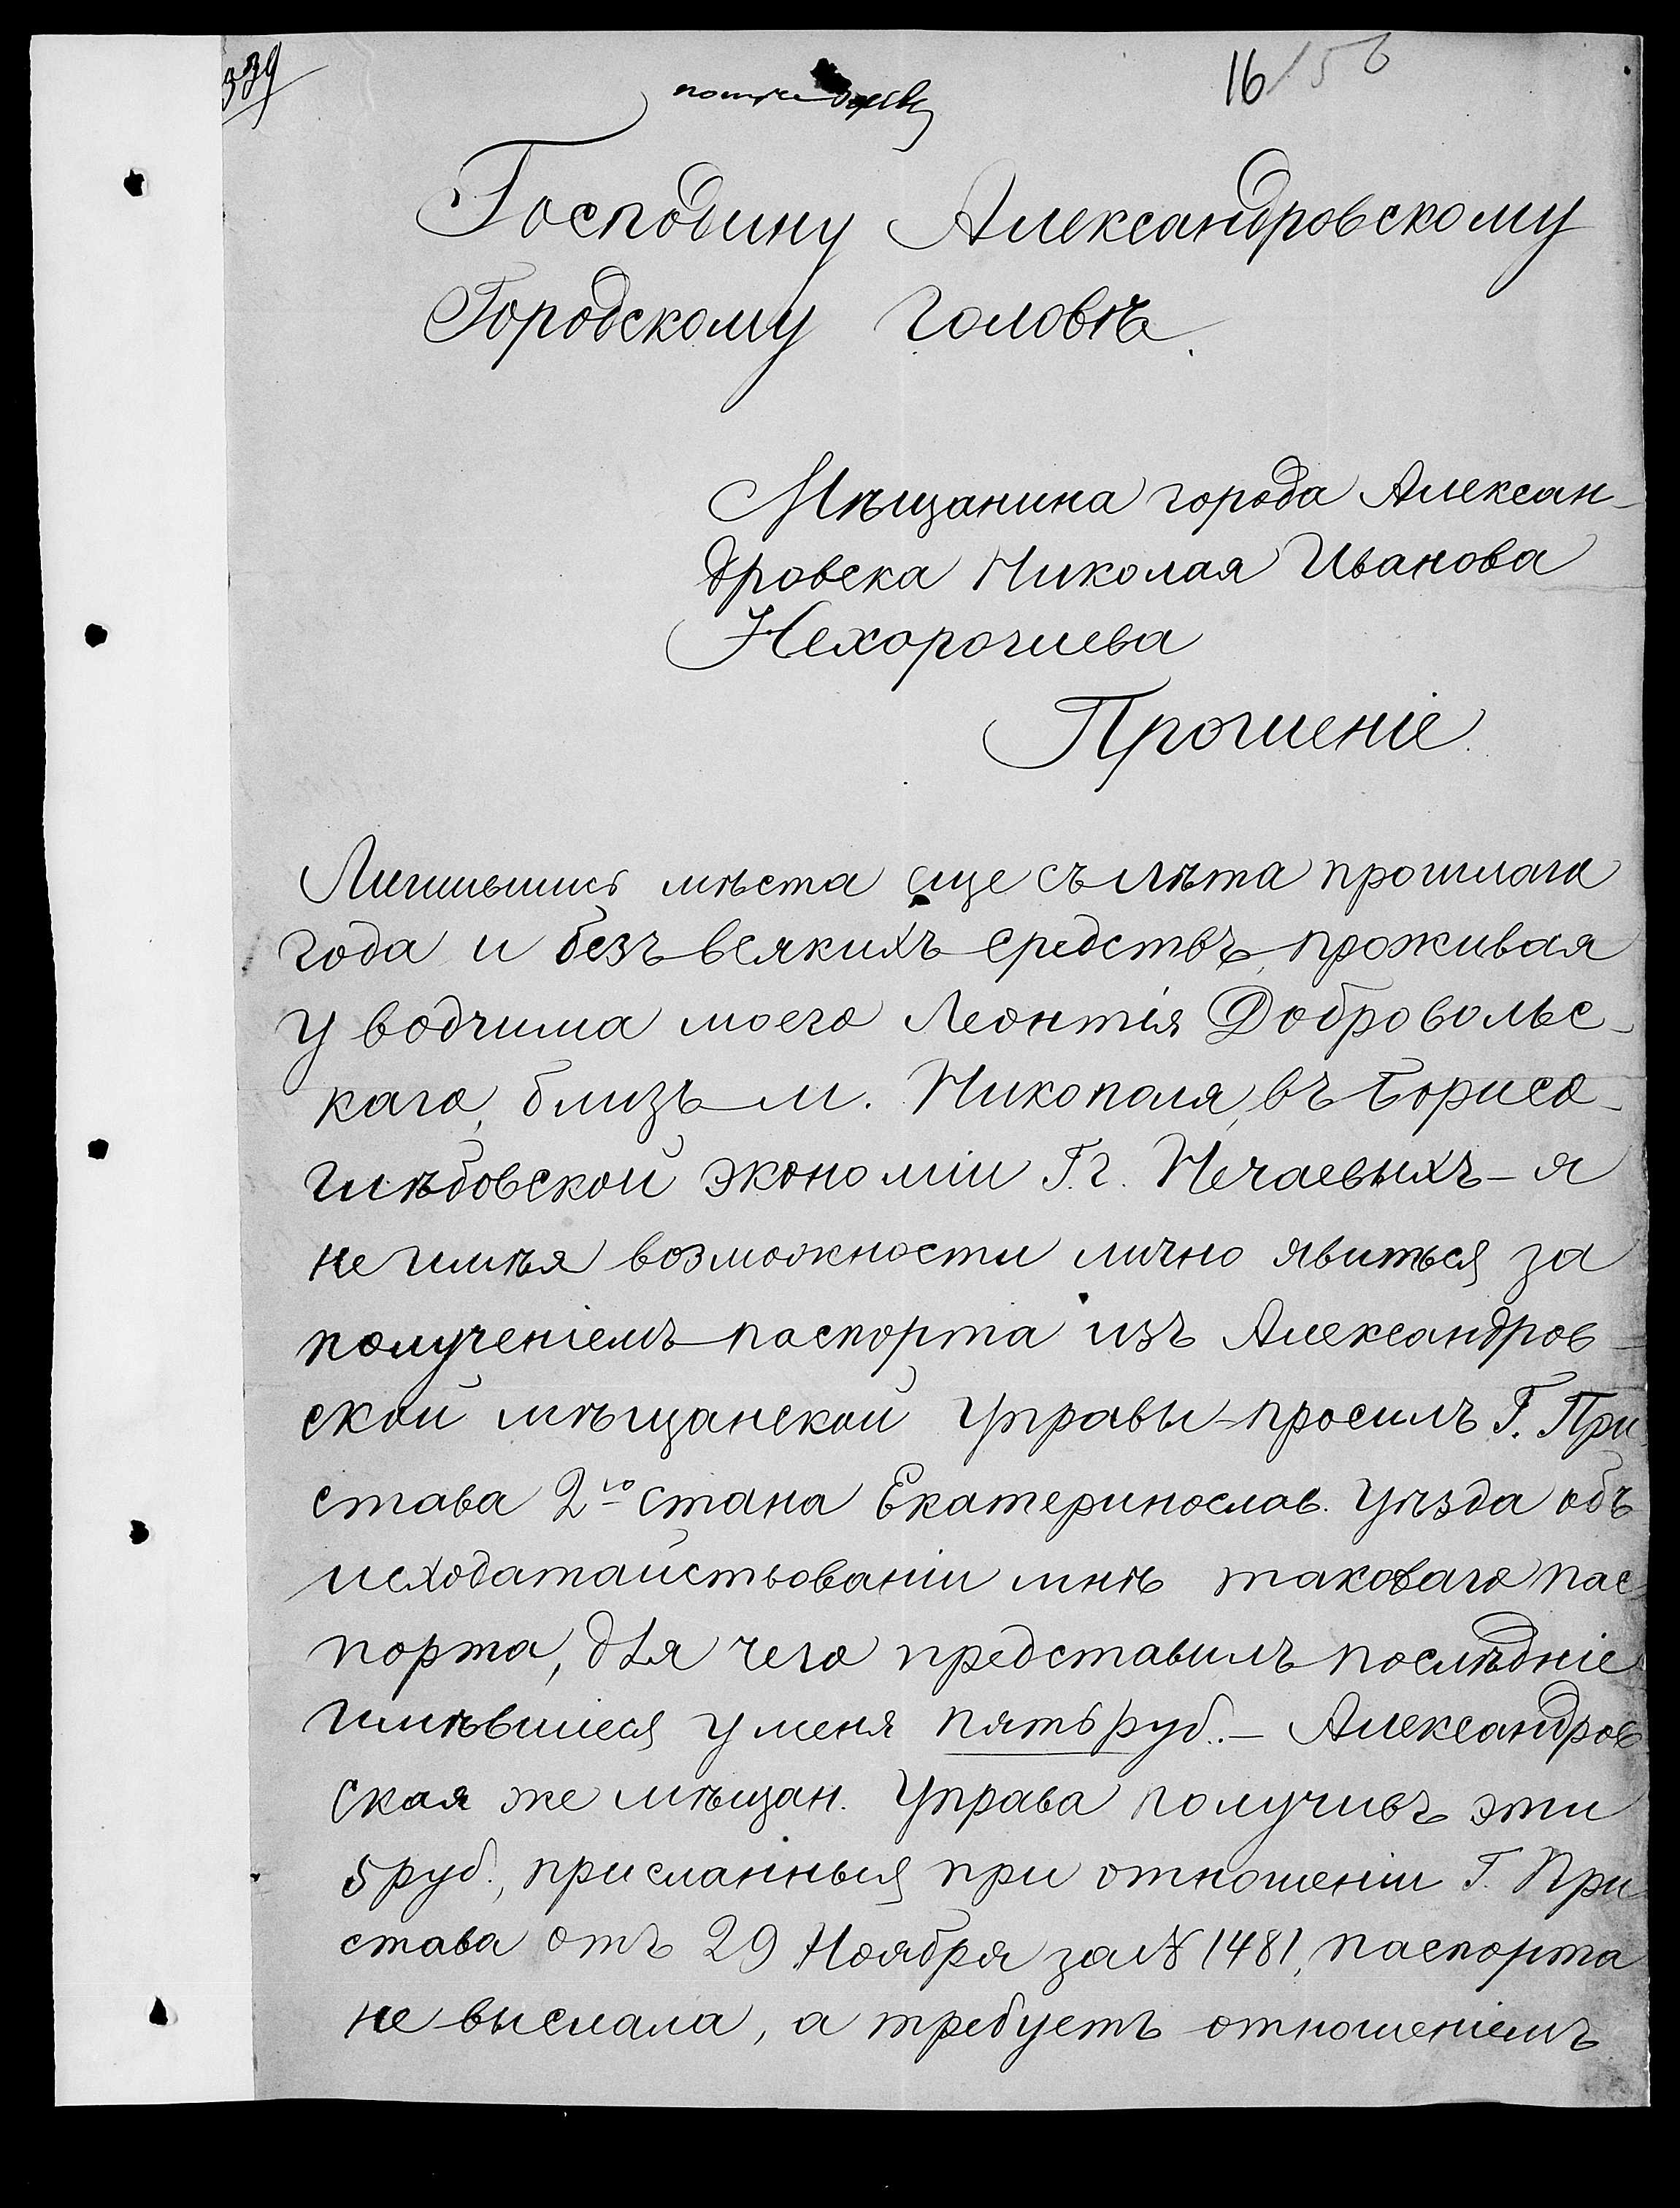 339
16/56
Господину Александровскому
Городскому Головѣ.
Мѣщанина города Алексан-
дровска Николая Иванова
Нехорошева
Прошеніе.
Лишившись мѣста еще съ лѣта прошлаго
года и безъ всякихъ средствъ, проживая
у водчима моего Леонтія Добровольс-
каго, близъ м. Никополя, въ Борисо-
глѣбовской экономіи Г.г. Нечаевыхъ – я
не имѣя возможности лично явиться за
полученіемъ паспорта изъ Александров-
ской мѣщанской Управы – просилъ Г. При-
става 2го стана Екатеринослав. Уѣзда объ
исходатайствованіи мнѣ таковаго пас-
порта, для чего представилъ послѣдніе
имѣвшіеся у меня пять руб. – Александров
ская же мѣщан. Управа получивъ эти
5 руб., присланныя при отношеніи Г. При
става отъ 29 Ноября за № 1481, паспорта
не выслала, а требуетъ отношеніемъ